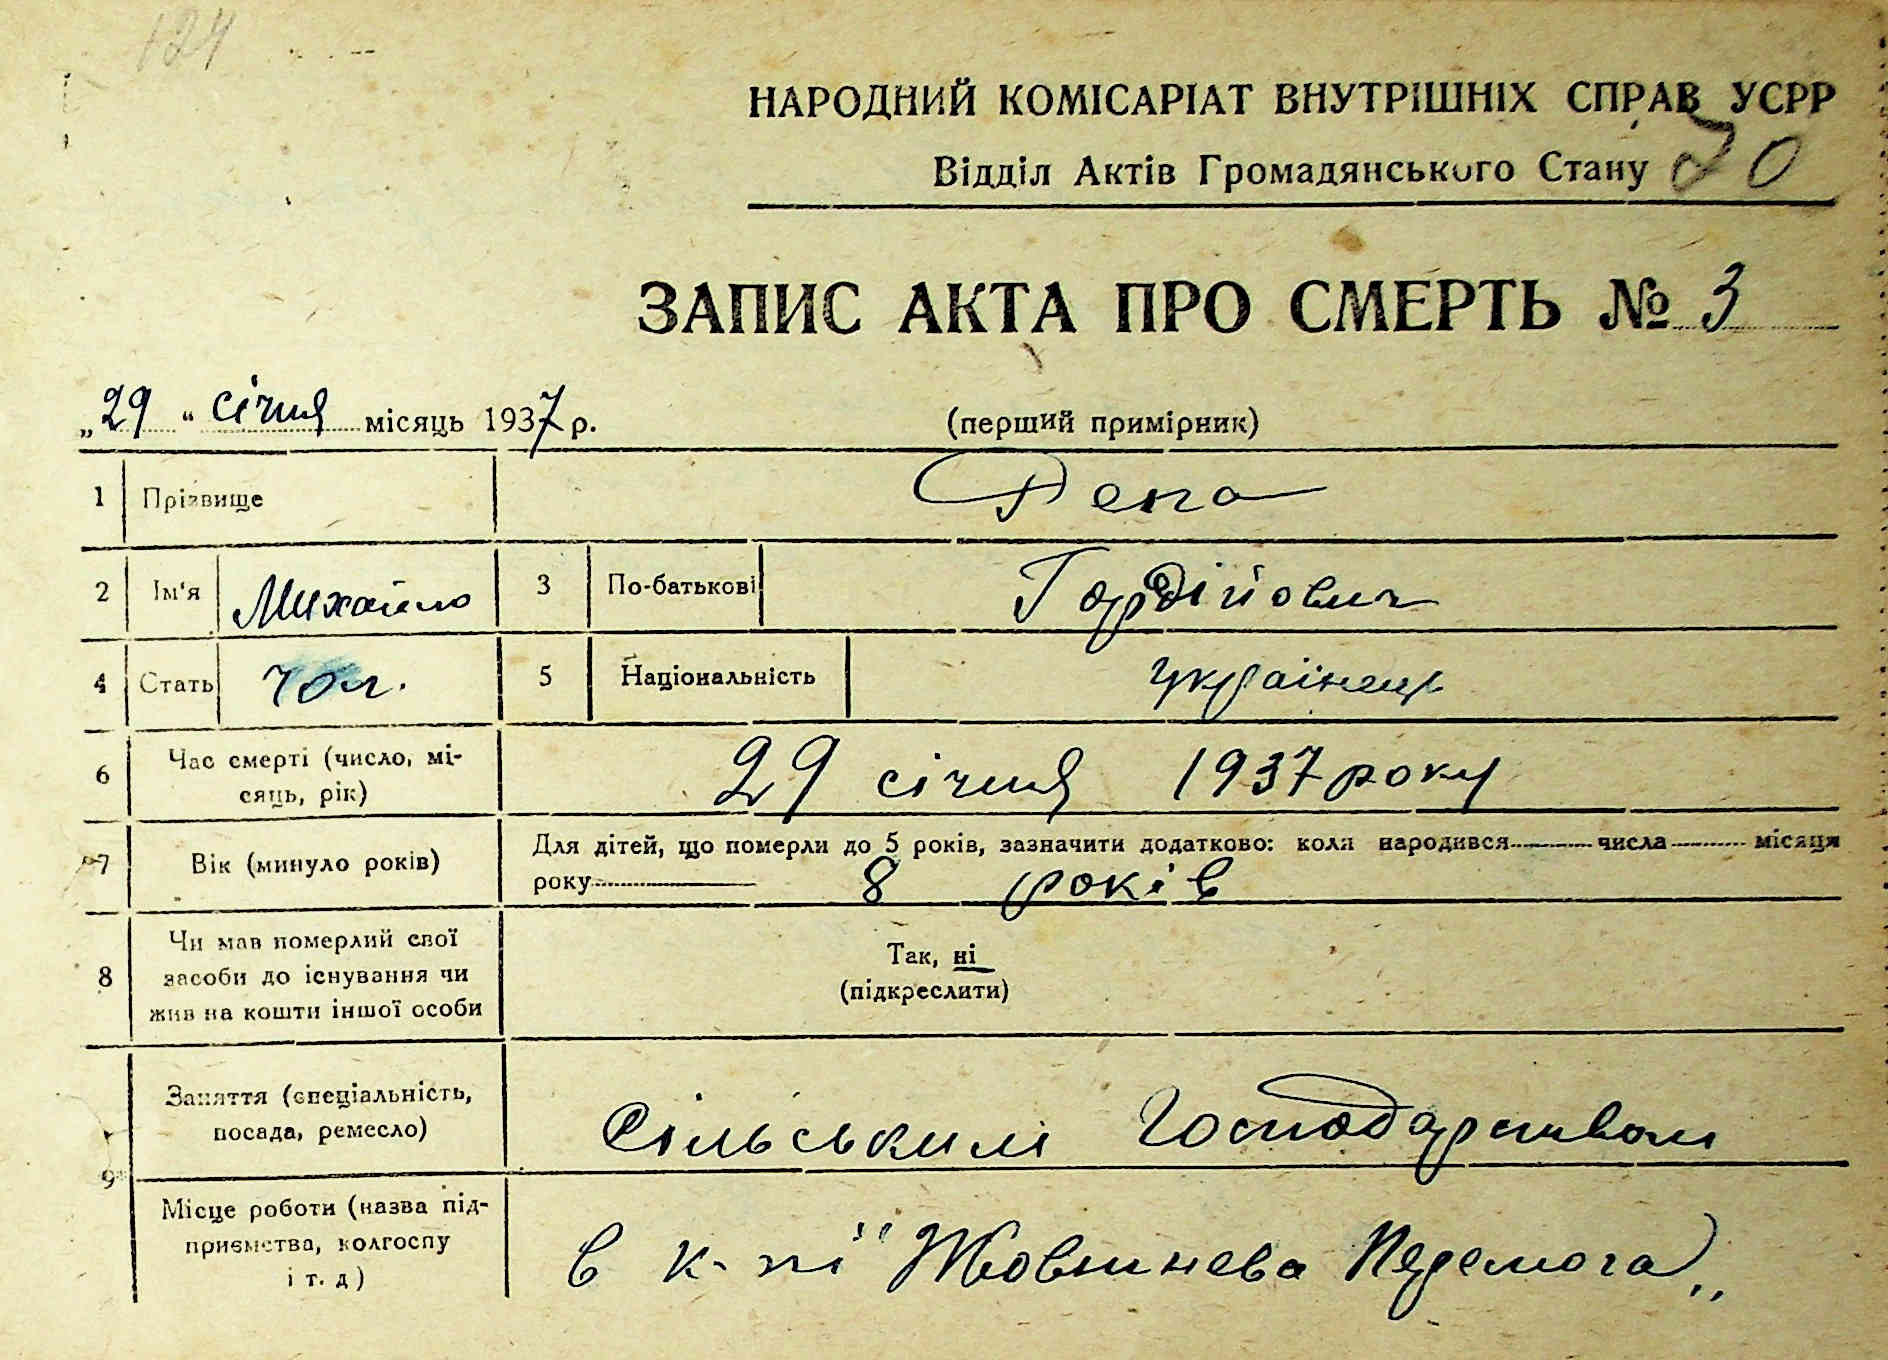 124
НАРОДНИЙ КОМІСАРІАТ ВНУТРІШНІХ СПРАВ УСРР
Відділ Актів Громадянського Стану 70
ЗАПИС АКТА ПРО СМЕРТЬ № 3
„29“ січня місяць 1937 р. (перший примірник)
1 Прізвище Репа
2 Ім'я Михайло 3 По-батькові Гордійович
4 Стать чол. 5 Національність українець
6 Час смерті (число, мі-
сяць, рік) 29 січня 1937 року
7 Вік (минуло років) Для дітей, що померли до 5 років, зазначити додатково: коли народився числа місяця
року 8 років
8 Чи мав померлий свої
засоби до існування чи
жив на кошти іншої особи
Так, ні
(підкреслити)
9 Заняття (спеціальність,
посада, ремесло) Сільським Господарством
Місце роботи (назва під-
приємства, колгоспу
і т. д)
в к-пі "Жовтнева Перемога"